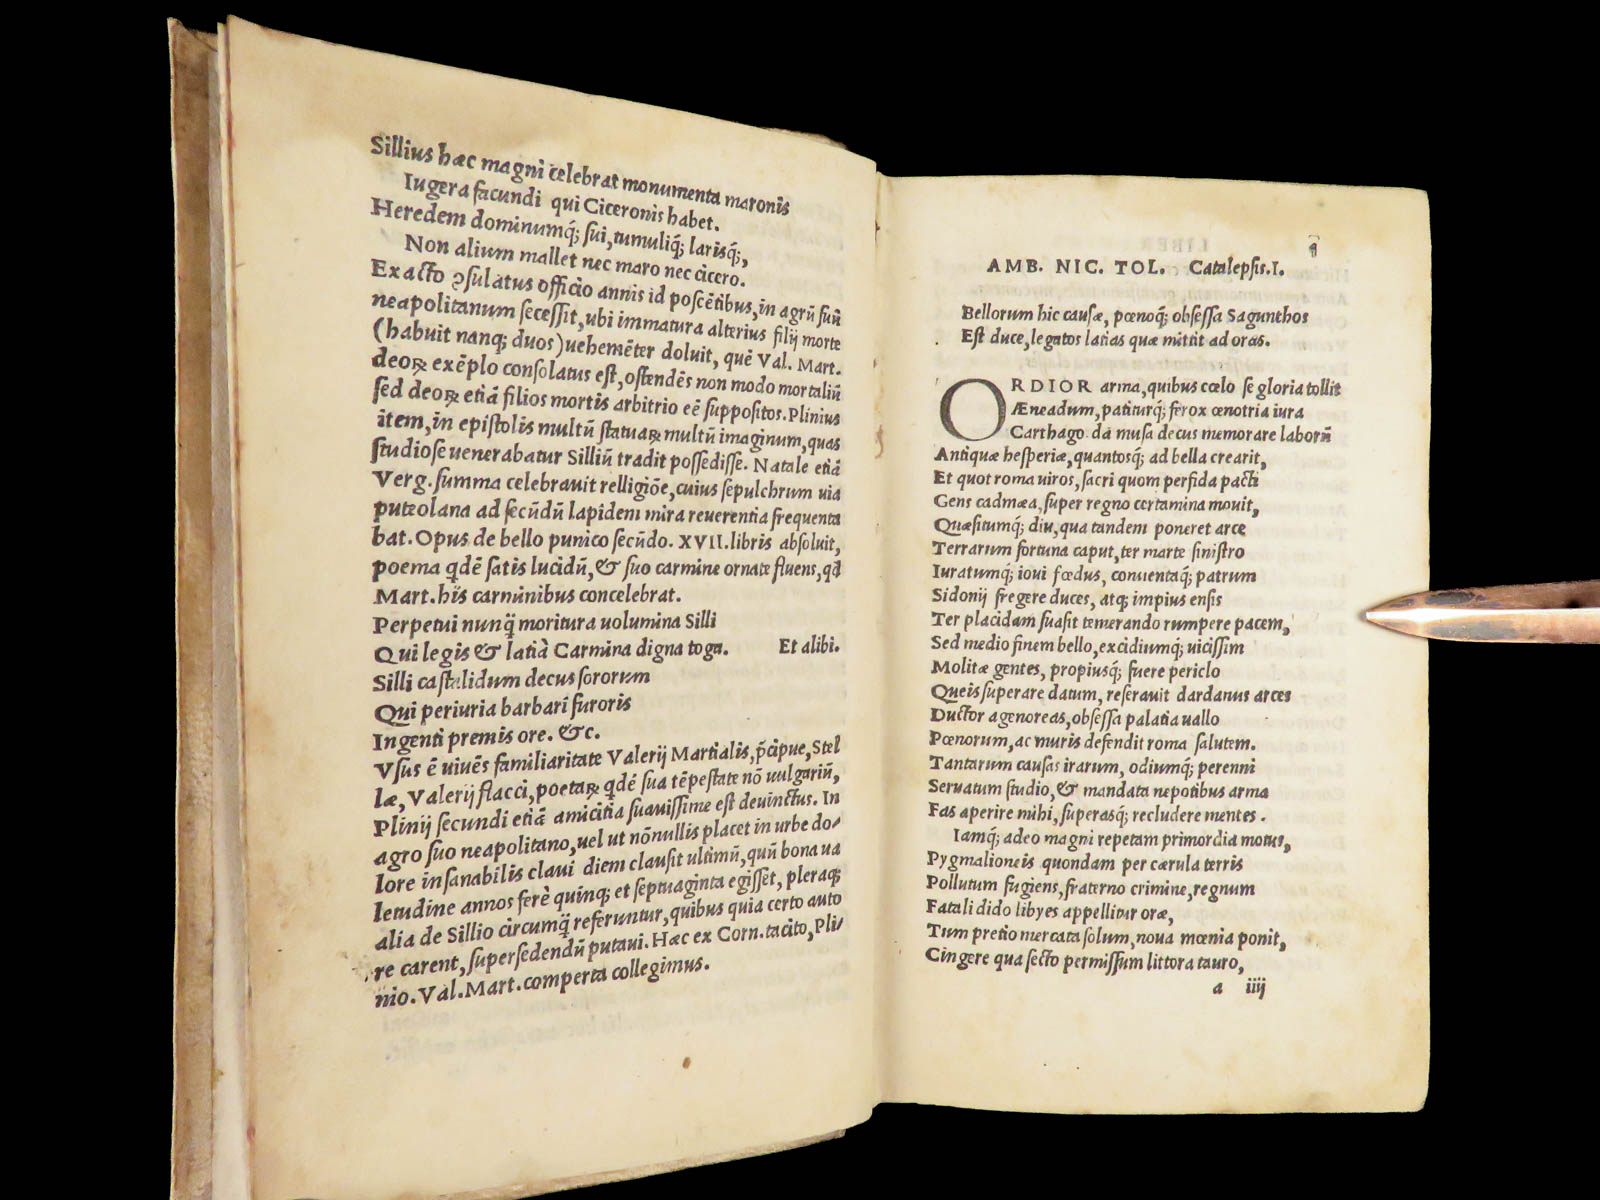 Sillius hæc magni celebrat monumenta maronis
Iugera facundi qui Ciceronis habet.
Heredem dominumq́; sui, tumuliq́; larisq́;,
Non alium mallet nec maro nec cicero.
Exacto ↄſulatus officio annis id poſcētibus, in agrū ſuū
neapolitanum ſeceſſit, ubi immatura alterius filij morte
(habuit nanq; duos) uehemēter doluit, quē Val. Mart.
deoꝝ exēplo conſolatus eſt, oſtendēs non modo mortaliū
ſed deoꝝ etiā filios mortis arbitrio eē ſuppoſitos. Plinius
item, in epiſtolis multū ſtatuaꝝ multū imaginum, quas
ſtudioſe uenerabatur Silliū tradit poſſediſſe. Natale etiā
Verg. ſumma celebrauit relligiōe, cuius ſepulchrum uia
puteolana ad ſecūdū lapidem mira reuerentia frequenta
bat. Opus de bello punico ſecūdo. XVII. libris abſoluit,
poema qdē ſatis lucidū, & ſuo carmine ornate fluens, qd
Mart. his carminibus concelebrat.
Perpetui nunq̄ moritura uolumina Silli
Qui legis & latia Carmina digna toga. Et alibi.
Silli caſtalidum decus ſororum
Qui periuria barbari furoris
Ingenti premis ore. &c.
Vſus ē uiuēs familiaritate Valerij Martialis, p̄cipue, Stel
læ, Valerij flacci, poetaꝝ qdē ſua tēpeſtate nō uulgariū,
Plinij ſecundi etiā amicitia ſuauiſſime eſt deuinctus. In
agro ſuo neapolitano, uel ut nōnullis placet in urbe do⸗
lore inſanabilis claui diem clauſit ultimū, quū bona ua
letudine annos ferè quinq; et ſeptuaginta egiſſet, pleraq;
alia de Sillio circumq̄ referuntur, quibus quia certo auto
re carent, ſuperſedendū putaui. Hæc ex Corn. tacito, Pli⸗
nio. Val. Mart. comperta collegimus.
AMB. NIC. TOL. Catalepſis. I.
Bellorum hic cauſæ, pœnoq́; obſeſſa Sagunthos
Eſt duce, legatos latias quæ mittit ad oras.
ORDIOR arma, quibus cœlo ſe gloria tollit
Æneadum, patiturq́; ferox œnotria iura
Carthago. da muſa decus memorare laborū
Antiquæ heſperiæ, quantosq́; ad bella crearit,
Et quot roma uiros, ſacri quom perfida pacti
Gens cadmæa, ſuper regno certamina mouit,
Quæſitumq́; diu, qua tandem poneret arce
Terrarum fortuna caput, ter marte ſiniſtro
Iuratumq́; ioui fœdus, conuentaq́; patrum
Sidonij fregere duces, atq; impius enſis
Ter placidam ſuaſit temerando rumpere pacem,
Sed medio finem bello, excidiumq́; uiciſſim
Molitæ gentes, propiusq́; fuere periclo
Queis ſuperare datum, reſerauit dardanus arces
Ductor agenoreas, obſeſſa palatia uallo
Pœnorum, ac muris defendit roma ſalutem.
Tantarum cauſas irarum, odiumq́; perenni
Seruatum ſtudio, & mandata nepotibus arma
Fas aperire mihi, ſuperasq́; recludere mentes.
Iamq́; adeo magni repetam primordia motus,
Pygmalioneis quondam per cærula terris
Pollutum fugiens, fraterno crimine, regnum
Fatali dido libyes appellitur oræ,
Tum pretio mercata ſolum, noua mœnia ponit,
Cingere qua ſecto permiſſum littora tauro,
a iiij